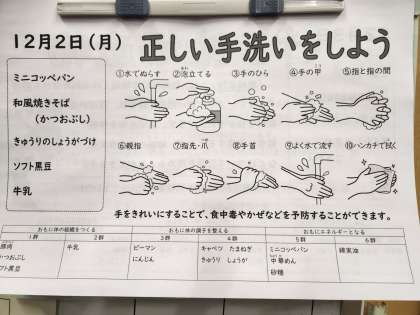 12月2日(月) 正しい手洗いをしよう
ミニコッペパン
和風焼きそば
(かつおぶし)
きゅうりのしょうがづけ
ソフト黒豆
牛乳
①水でぬらす ②泡立てる ③手のひら ④手の甲 ⑤指と指の間
⑥親指 ⑦指先・爪 ⑧手首 ⑨よく水で流す ⑩ハンカチで拭く
手をきれいにすることで、食中毒やかぜなどを予防することができます。
おもに体の組織をつくる おもに体の調子を整える おもにエネルギーとなる
1群 2群 3群 4群 5群 6群
豚肉 牛乳 ピーマン キャベツ たまねぎ ミニコッペパン 綿実油
かつおぶし にんじん きゅうり しょうが 中華めん
ソフト黒豆 砂糖